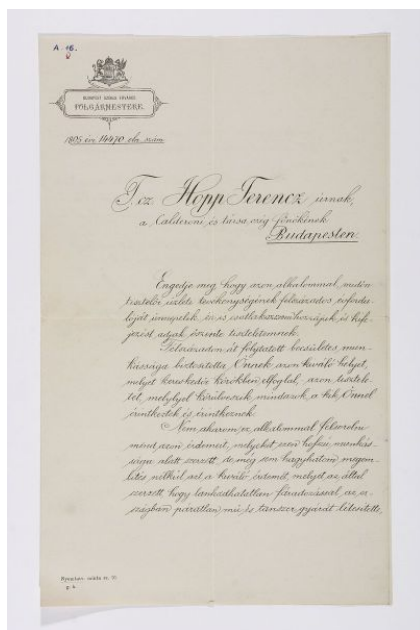 A. 16.
BUDAPEST SZÉKES FŐVÁROS
POLGÁRMESTERE.
1895 évi 14470 eln. szám
T. cz. Hopp Ferencz úrnak,
a Calderoni és társa czég főnökének
Budapesten.
Engedje meg hogy azon alkalommal midőn
tisztelői üzlete tevékenységének félszázados évfordu-
lóját ünnepelik, én is csatlakozzam hozzájok és kife-
jezést adjak őszinte tiszteletemnek.
Félszázadon át folytatott becsületes mun-
kássága biztosította Önnek azon kiváló helyet,
melyet kereskedői körökben elfoglal, azon tisztele-
tet, melylyel körülveszik mindazok, a kik Önnel
érintkeztek és érintkeznek.
Nem akarom ez alkalommal felsorolni
mind azon érdemeit, melyeket ezen hosszú munkás-
sága alatt szerzett, de még sem hagyhatom megem-
lítés nélkül azt a kiváló érdemét, melyet az által
szerzett, hogy lankadhatatlan fáradozással az or-
szágban páratlan mű és tanszer gyárát létesítette,
Nyomtatv. minta sz. 21.
g. k.